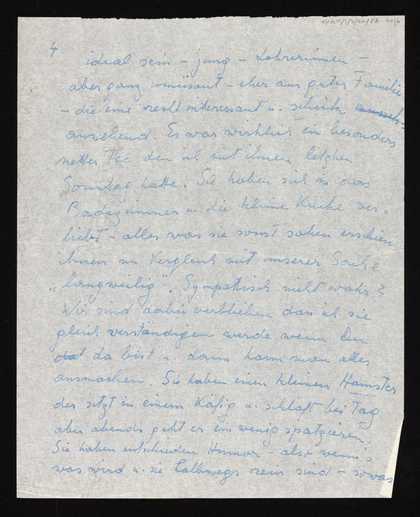 4
ideal sein – jung – Lehrerinnen –
aber ganz amüsant – eher aus guter Familie
– die eine recht interessant u. scheinbar
anziehend. Es war wirklich ein besonders
netter Tee den ich mit ihnen letzten
Sonntag hatte. Sie haben sich in das
Badezimmer u. die kleine Küche ver-
liebt – alles was sie sonst sahen erschien
ihnen im Vergleich mit unserer Sache
"langweilig". Sympathisch nicht wahr?
Wir sind dabei verblieben dass ich sie
gleich verständigen werde wenn Du
da bist u. dann kann man alles
ausmachen. Sie haben einen kleinen Hamster
der sitzt in einem Käfig u. schläft bei Tag
aber abends geht er ein wenig spatzieren!
Sie haben entschieden Humor – also wenn's
was wird u. sie halbwegs rein sind – so was